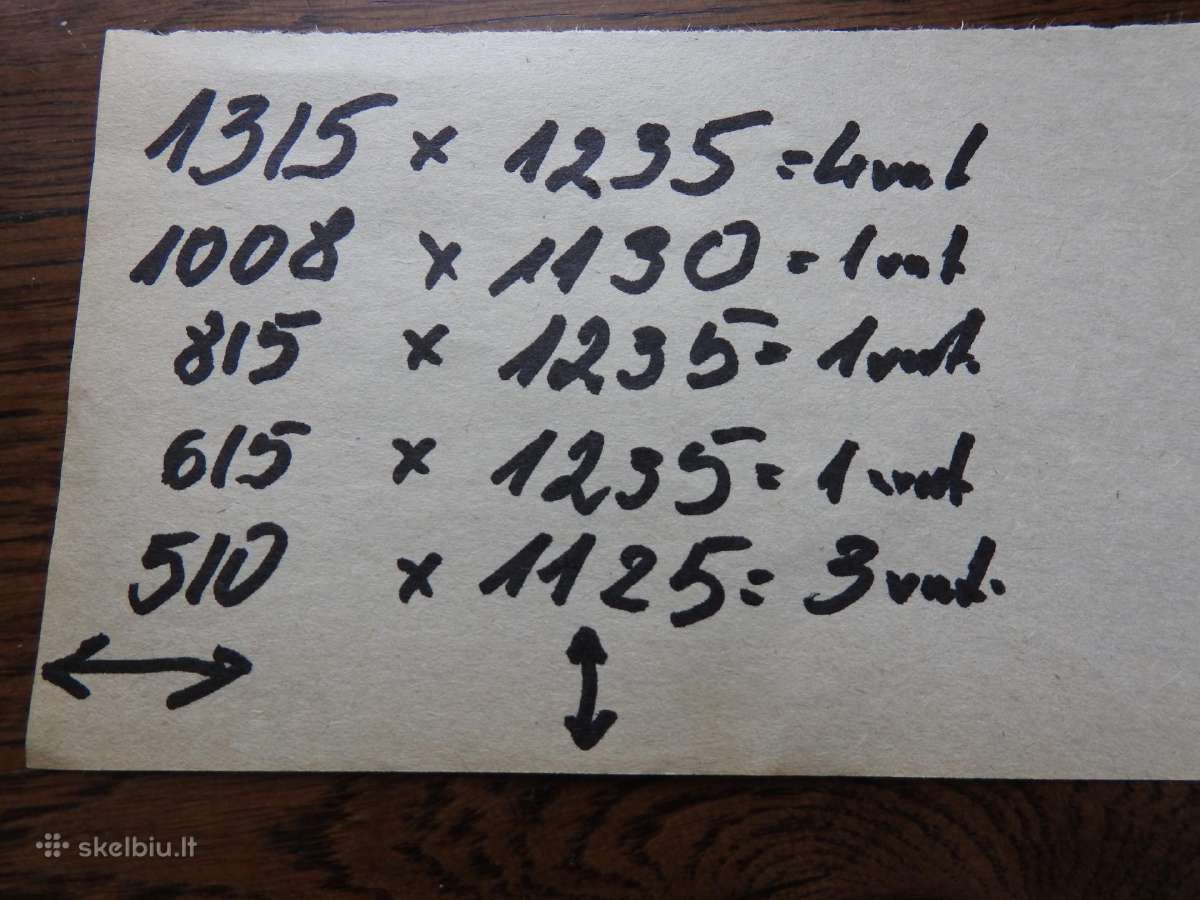 1315 × 1235 = 4 vnt
1008 × 1130 = 1 vnt.
815 × 1235 = 1 vnt.
615 × 1235 = 1 vnt
510 × 1125 = 3 vnt.
skelbiu.lt